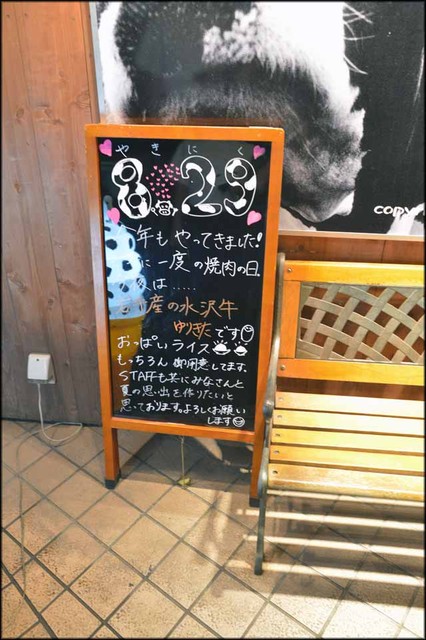 やきにく
8 29
年もやってきました!
に一度の焼肉の日。
は.....
産の水沢牛
ゆりきたです
おっぱいライス
もっちろん御用意してます。
STAFFも共にみなさんと
夏の思い出を作りたいと
思っております。よろしくお願い
します
COPY